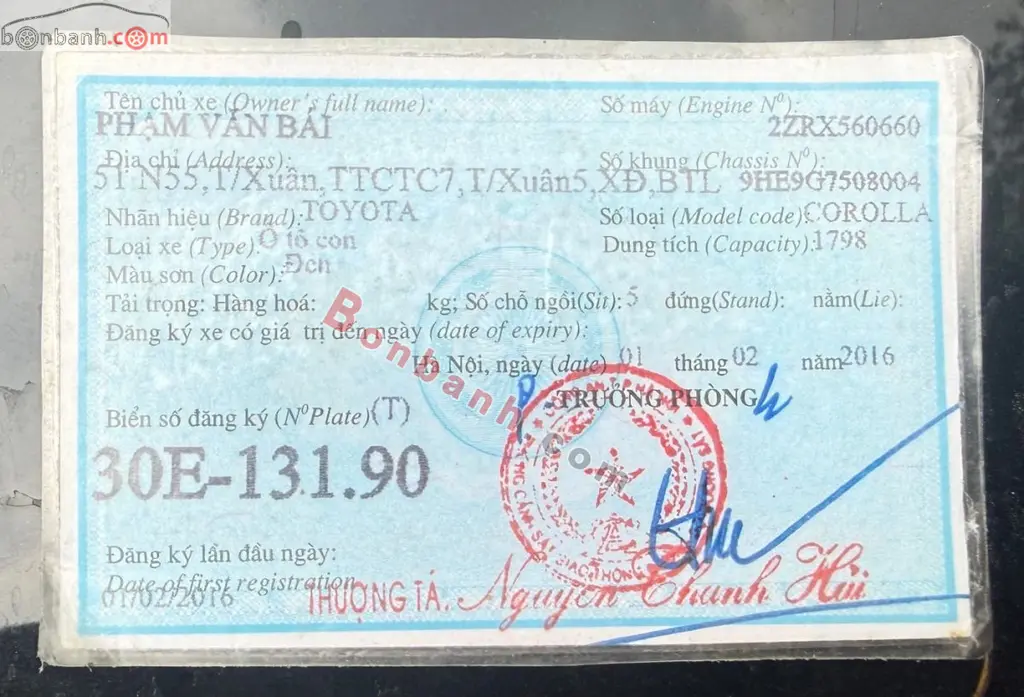 bonbanh.com
Tên chủ xe (Owner's full name):
PHẠM VĂN BÁI
Số máy (Engine Nº):
2ZRX560660
Địa chỉ (Address):
51 N55,T/Xuân,TTCTC7,T/Xuân5,XĐ,BTL
Số khung (Chassis Nº):
9HE9G7508004
Nhãn hiệu (Brand): TOYOTA
Số loại (Model code) COROLLA
Loại xe (Type): Ô tô con
Dung tích (Capacity): 1798
Màu sơn (Color): Đen
Tải trọng: Hàng hoá: kg; Số chỗ ngồi(Sit): 5 đứng(Stand): nằm(Lie):
Đăng ký xe có giá trị đến ngày (date of expiry):
Hà Nội, ngày (date) 01 tháng 02 năm 2016
P. TRƯỞNG PHÒNG
Biển số đăng ký (NºPlate)(T)
30E-131.90
Bonbanh.com
Đăng ký lần đầu ngày:
Date of first registration
01/02/2016
THƯỢNG TÁ. Nguyễn Thanh Hải